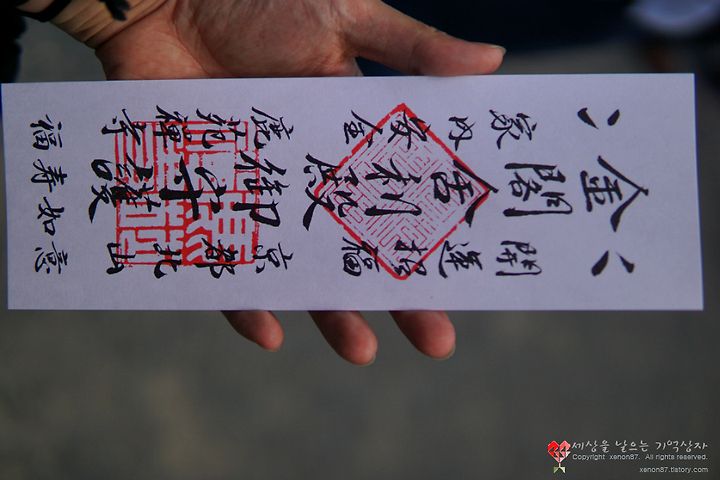 金閣舎利殿御守護
開運招福
家内安全
京都北山
鹿苑禅寺
福寿如意
세상을 낚으는 기억상자
Copyright xenon87. All rights reserved.
xenon87.tistory.com